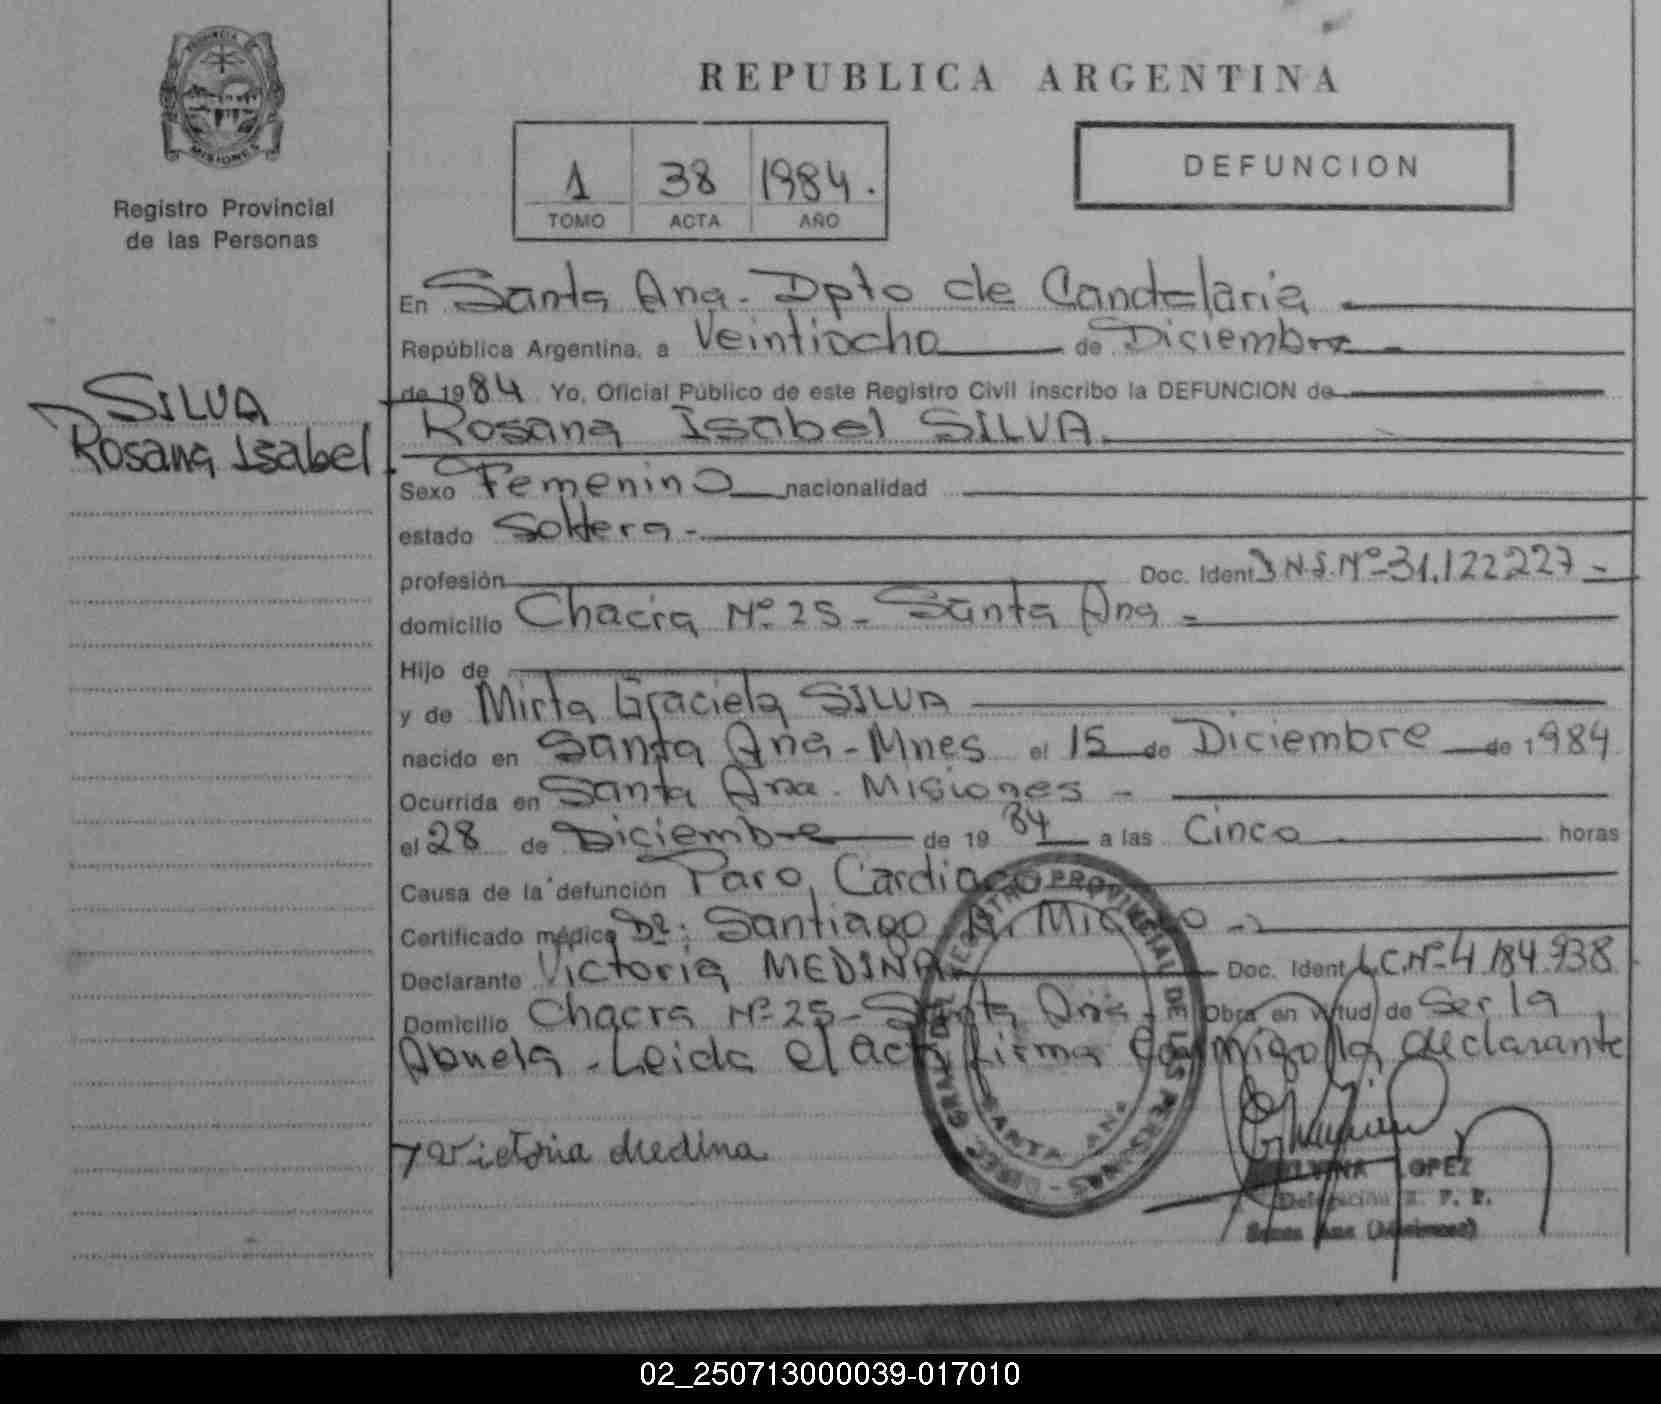 PROVINCIA DE
MISIONES
Registro Provincial
de las Personas
SILVA
Rosana Isabel
REPUBLICA ARGENTINA
1 38 1984.
TOMO ACTA AÑO
DEFUNCION
En Santa Ana - Dpto de Candelaria
República Argentina, a Veintiocho de Diciembre
de 1984 Yo, Oficial Público de este Registro Civil inscribo la DEFUNCION de
Rosana Isabel SILVA.
Sexo Femenino nacionalidad
estado Soltera -
profesión Doc. Ident. D.N.I. Nº 31.122227 -
domicilio Chacra Nº 25 - Santa Ana -
Hijo de
y de Mirta Graciela SILVA
nacido en Santa Ana - Mnes el 15 de Diciembre de 1984
Ocurrida en Santa Ana - Misiones -
el 28 de Diciembre de 19 84 a las Cinco horas
Causa de la defunción Paro, Cardiaco
Certificado médico Dr: Santiago
Declarante Victoria MEDINA Doc. Ident L.C. Nº 4 184.938
Domicilio Chacra Nº 25 - Santa Ana - Obra en virtud de Ser la
Abuela - Leida el acta firma Conmigo la declarante
Victoria Medina
REGISTRO PROVINCIAL DE LAS PERSONAS
SANTA ANA
LOPEZ
Delegación R. P. P.
Santa Ana (Misiones)
02_250713000039-017010